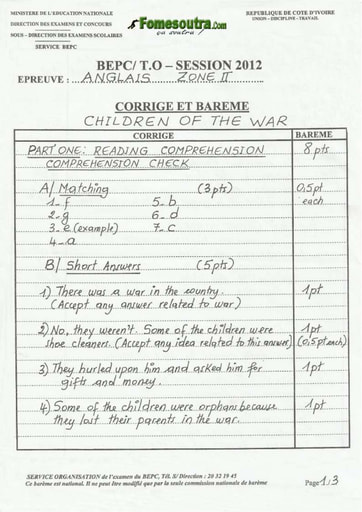 MINISTERE DE L'EDUCATION NATIONALE
DIRECTION DES EXAMENS ET CONCOURS
SOUS – DIRECTION DES EXAMENS SCOLAIRES
SERVICE BEPC
Fomesoutra.com
ça soutra !
REPUBLIQUE DE COTE D'IVOIRE
UNION – DISCIPLINE – TRAVAIL
BEPC/ T.O – SESSION 2012
EPREUVE : ANGLAIS ZONE II
CORRIGE ET BAREME
CHILDREN OF THE WAR
CORRIGE BAREME
PART ONE: READING COMPREHENSION 8 pts
COMPREHENSION CHECK
A/ Matching (3 pts) 0,5 pt
1_f 5_b each
2_g 6_d
3_e (example) 7_c
4_a
B/ Short Answers (5 pts)
1) There was a war in the country. 1 pt
(Accept any answer related to war)
2) No, they weren't. Some of the children were 1 pt
shoe cleaners. (Accept any idea related to this answer) (0,5pt each)
3) They hurled upon him and asked him for 1 pt
gifts and money.
4) Some of the children were orphans because 1 pt
they lost their parents in the war.
SERVICE ORGANISATION de l'examen du BEPC, Tél. S/ Direction : 20 32 19 45
Ce barème est national. Il ne peut être modifié que par la seule commission nationale de barème
Page 1/3